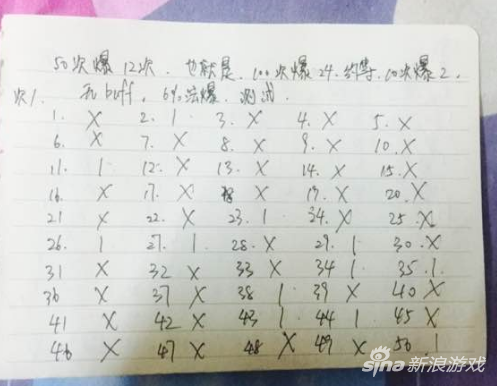 50次爆12次. 也就是. 100次爆24. 约等. 10次爆2.
次1. 无buff. 6%法爆. 测试.
1. X 2. 1 3. X 4. X 5. X
6. X 7. X 8. X 9. X 10. X
11. 1 12. X 13. X 14. X 15. X
16. X 17. X 18 X 19. X 20. X
21 X 22. X 23. 1 24. X 25. X
26. 1 27. 1 28. X 29. 1 30. X
31 X 32 X 33 X 34 1 35. 1
36 X 37 X 38 1 39 X 40 X
41 X 42 X 43 1 44 1 45 X
46 X 47 X 48 X 49 X 50 1
sina新浪游戏